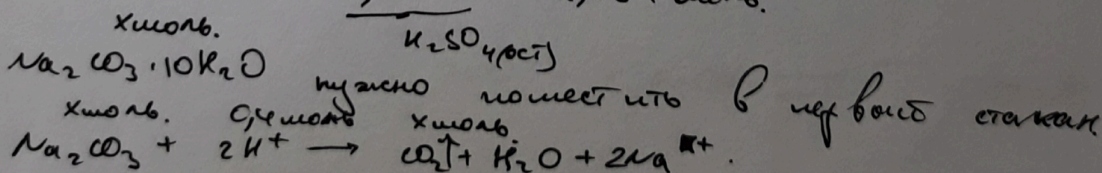 хмоль. H₂SO₄(ост)
Na₂CO₃·10H₂O нужно поместить в первый стакан
хмоль. 0,4моль хмоль.
Na₂CO₃ + 2H⁺ → CO₂↑ + H₂O + 2Na⁺.